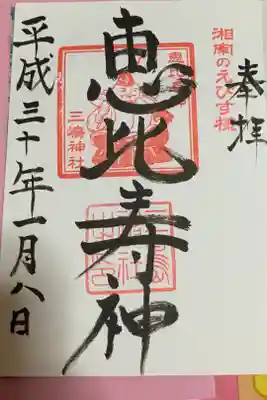 奉拝
湘南のえびす様
恵比寿神
三嶋神社
平成三十年一月八日